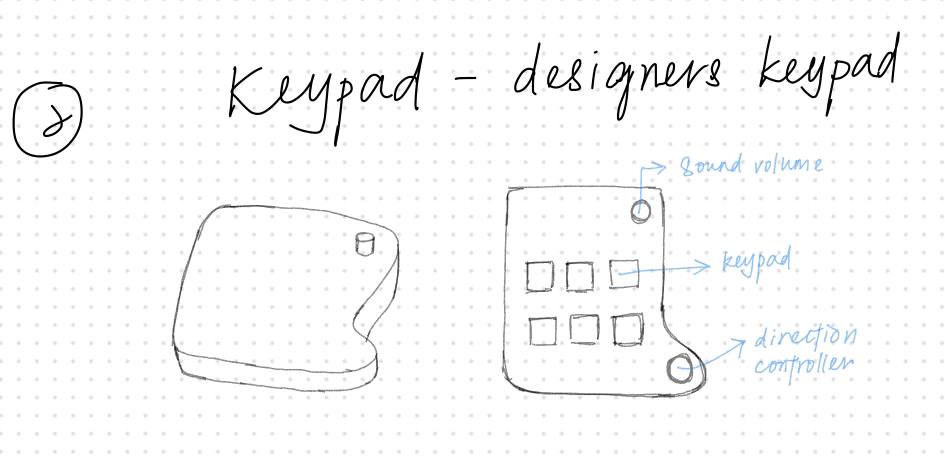 Keypad - designers keypad
sound volume
keypad
direction
controller